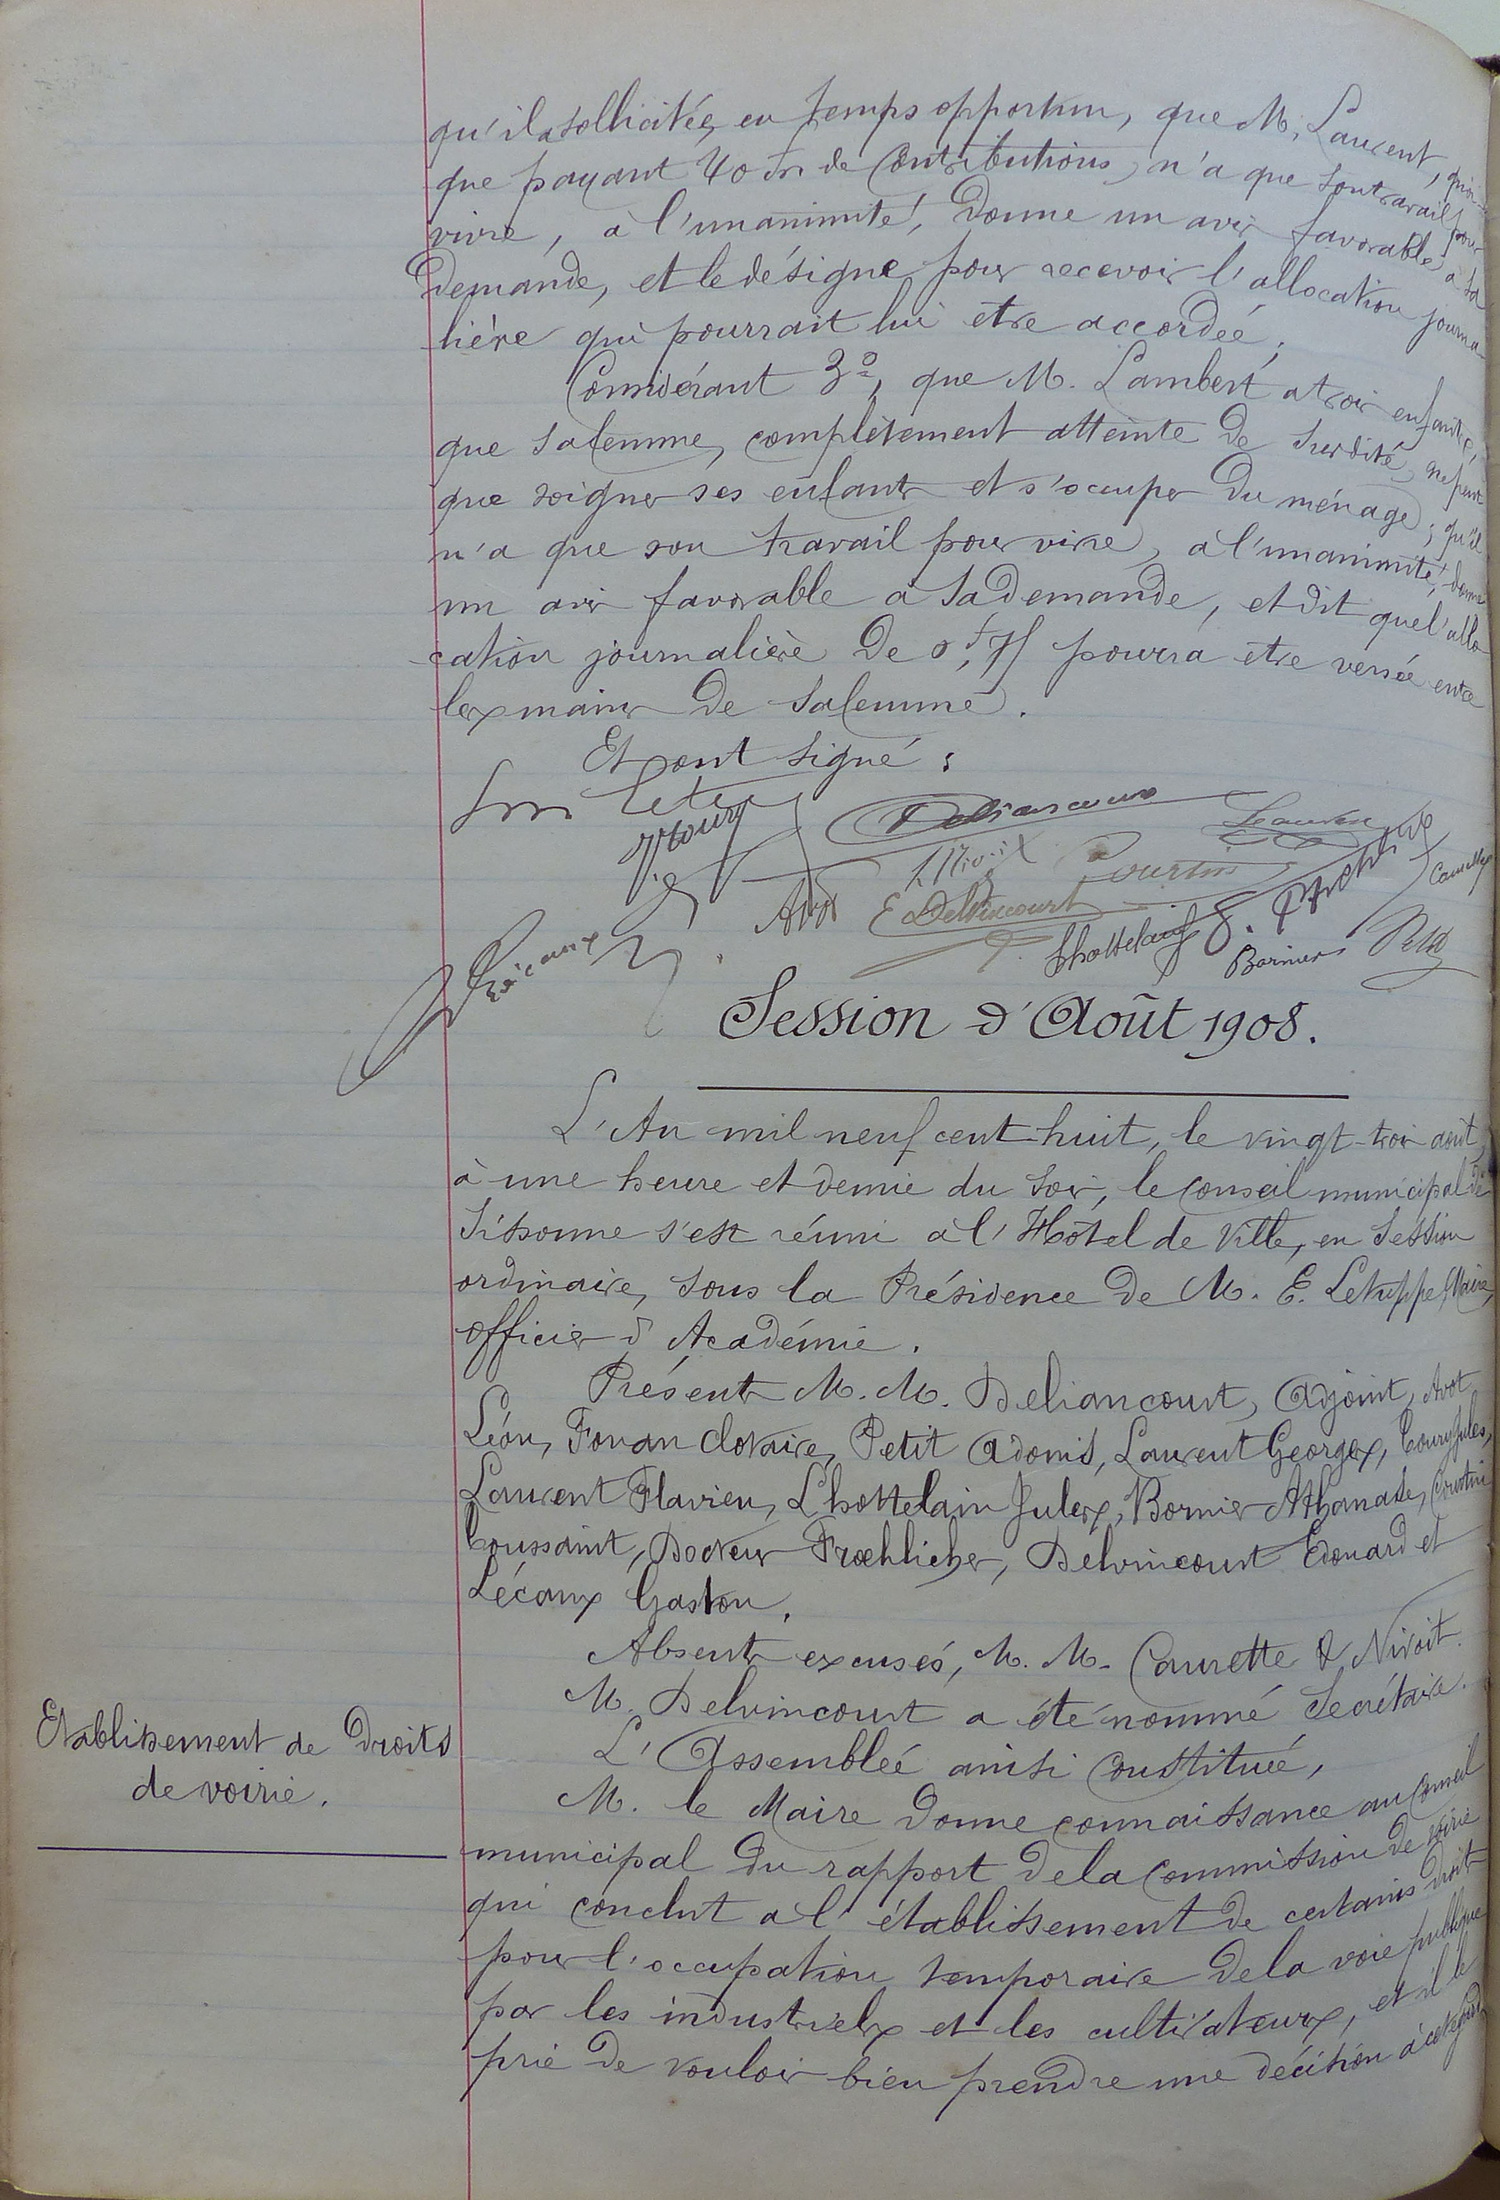 qu'il a sollicitée en temps opportun, que M. Laurent, quoi-
que payant 40 frs de Contributions, n'a que son travail pour
vivre, à l'unanimité, donne un avis favorable à sa
demande, et le désigne pour recevoir l'allocation journa-
lière qui pourrait lui être accordée ;
Considérant 3º, que M. Lambert a trois enfants,
que sa femme, complètement atteinte de surdité, ne peut
que soigner ses enfants et s'occuper du ménage ; qu'il
n'a que son travail pour vivre, à l'unanimité, donne
un avis favorable à sa demande, et dit que l'allo
cation journalière de 0f,75 pourra être versée entre
les mains de sa femme.
Et ont signé :
Deliancourt
Laurent
Toury
Nivoit
Courtin
Avot E Delvincourt
G. Froehlicher
Caurette
Lhottelain
Bornier
Petit
Lécaux
Session d'Août 1908.
L'An mil neuf cent-huit, le vingt-trois août,
à une heure et demie du soir, le Conseil municipal de
Sissonne s'est réuni à l'Hôtel de Ville, en Session
ordinaire, sous la Présidence de M. E. Letuppe, Maire,
officier d'Académie.
Présents M. M. Deliancourt, Adjoint, Avot
Léon, Fouan Clotaire, Petit Adonis, Laurent Georges, Toury Jules,
Laurent Flavien, Lhottelain Jules, Bornier Athanase, Courtin
Toussaint, Docteur Froehlicher, Delvincourt Edouard et
Lécaux Gaston.
Absents excusés, M. M. Caurette & Nivoit.
M. Delvincourt a été nommé Secrétaire.
L'Assemblée ainsi constituée,
Etablissement de Droits
de voirie.
M. le Maire donne connaissance au Conseil
municipal du rapport de la Commission de voirie
qui conclut à l'établissement de certains droits
pour l'occupation temporaire de la voie publique
par les industriels et les cultivateurs, et il le
prie de vouloir bien prendre une décision à cet égard